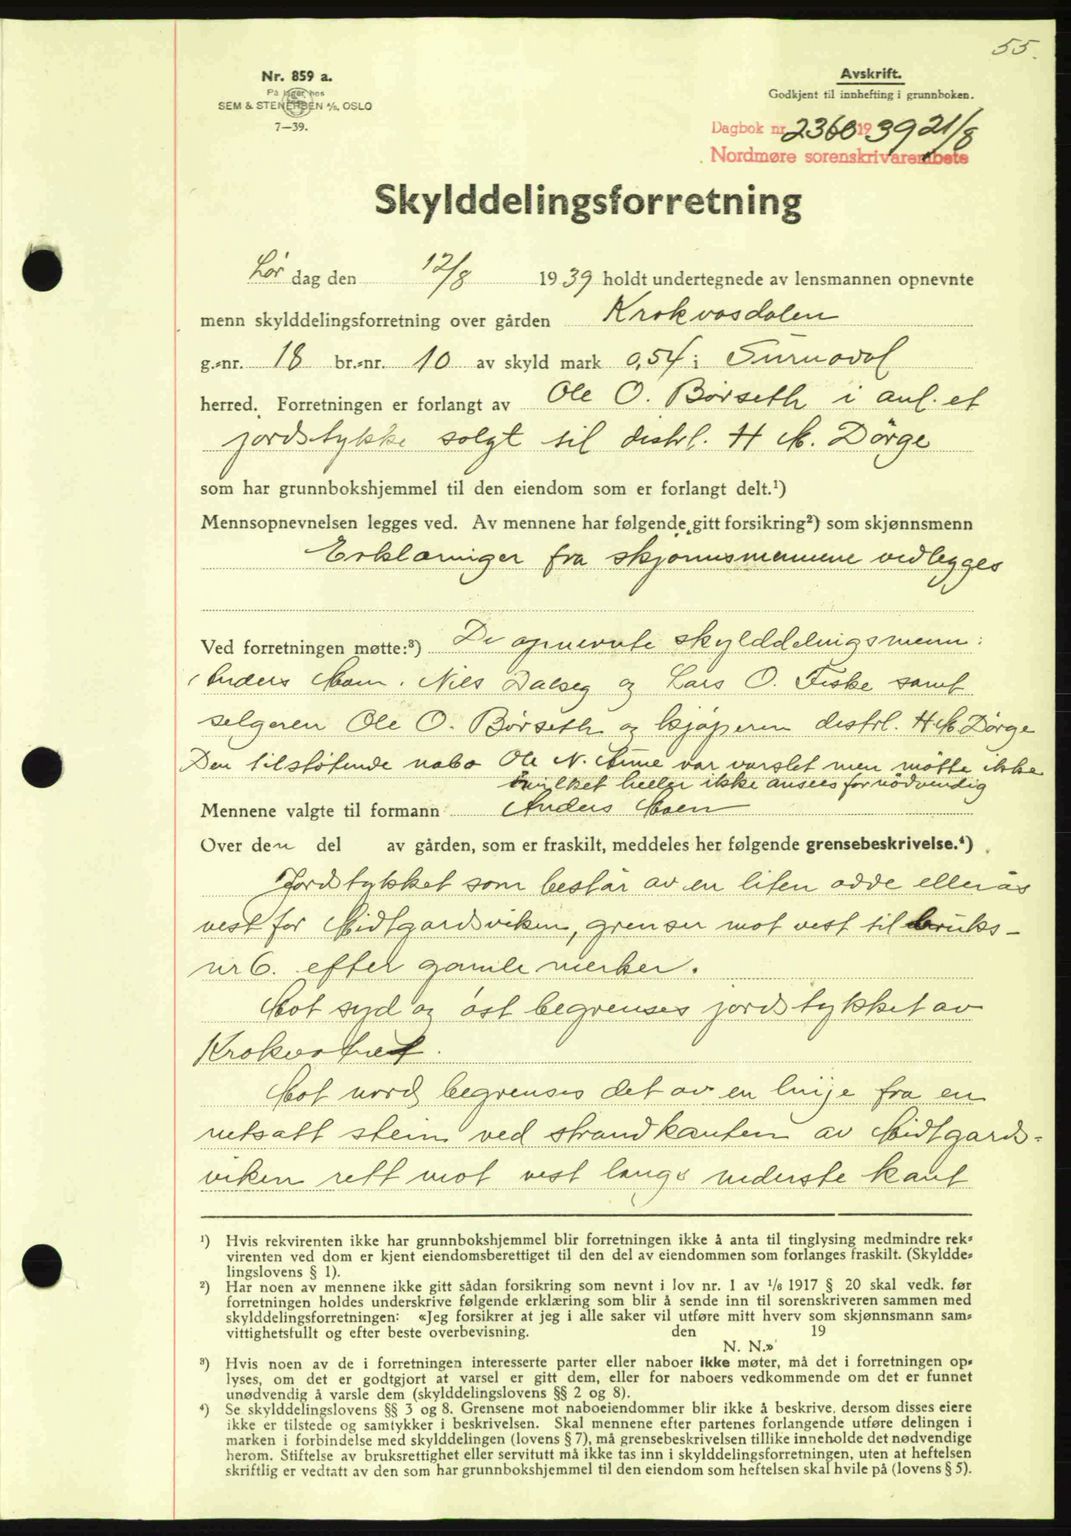 55.
Nr. 859 a.
På lager hos
SEM & STENERSEN A/S, OSLO
7—39.
Avskrift.
Godkjent til innhefting i grunnboken.
Dagbok nr. 2360 1939 21/8
Nordmøre sorenskrivarembete
Skylddelingsforretning
Lør dag den 12/8 1939 holdt undertegnede av lensmannen opnevnte
menn skylddelingsforretning over gården Krokvasdalen
g.-nr. 18 br.-nr. 10 av skyld mark 0,54 i Surnadal
herred. Forretningen er forlangt av Ole O. Børseth i anl. et
jordstykke solgt til distrl. H M. Dørge
som har grunnbokshjemmel til den eiendom som er forlangt delt.¹)
Mennsopnevnelsen legges ved. Av mennene har følgende gitt forsikring²) som skjønnsmenn
Erklæringer fra skjønnsmennene vedlegges
Ved forretningen møtte:³) De opnevnte skylddelingsmenn:
Anders Moen. Nils Dalseg og Lars O. Fiske samt
selgeren Ole O. Børseth og kjøperen distrl. H M Dørge
Den tilstøtende nabo Ole N. var varslet men møtte ikke
hvilket heller ikke ansees fornødvendig
Mennene valgte til formann Anders Moen
Over den del av gården, som er fraskilt, meddeles her følgende grensebeskrivelse.⁴)
Jordstykket som består av en liten odde eller ås
vest for Midtgardsviken, grenser mot vest til bruks-
nr 6. efter gamle merker.
Mot syd og øst begrenses jordstykket av
Krokvatnet.
Mot nord begrenses det av en linje fra en
netsatt stein ved strandkanten av Midtgards-
viken rett mot vest langs nederste kant
¹) Hvis rekvirenten ikke har grunnbokshjemmel blir forretningen ikke å anta til tinglysing medmindre rek-
virenten ved dom er kjent eiendomsberettiget til den del av eiendommen som forlanges fraskilt. (Skyldde-
lingslovens § 1).
²) Har noen av mennene ikke gitt sådan forsikring som nevnt i lov nr. 1 av 1/6 1917 § 20 skal vedk. før
forretningen holdes underskrive følgende erklæring som blir å sende inn til sorenskriveren sammen med
skylddelingsforretningen: «Jeg forsikrer at jeg i alle saker vil utføre mitt hverv som skjønnsmann sam-
vittighetsfullt og efter beste overbevisning. den 19
N. N.»
³) Hvis noen av de i forretningen interesserte parter eller naboer ikke møter, må det i forretningen op-
lyses, om det er godtgjort at varsel er gitt dem, eller for naboers vedkommende om det er funnet
unødvendig å varsle dem (skylddelingslovens §§ 2 og 8).
⁴) Se skylddelingslovens §§ 3 og 8. Grensene mot naboeiendommer blir ikke å beskrive, dersom disses eiere
ikke er tilstede og samtykker i beskrivelsen. Skal mennene efter partenes forlangende utføre delingen i
marken i forbindelse med skylddelingen (lovens § 7), må grensebeskrivelsen tillike inneholde det nødvendige
herom. Stiftelse av bruksrettighet eller servitutt må ikke tas inn i skylddelingsforretningen, uten at heftelsen
skriftlig er vedtatt av den som har grunnbokshjemmel til den eiendom som heftelsen skal hvile på (lovens § 5).